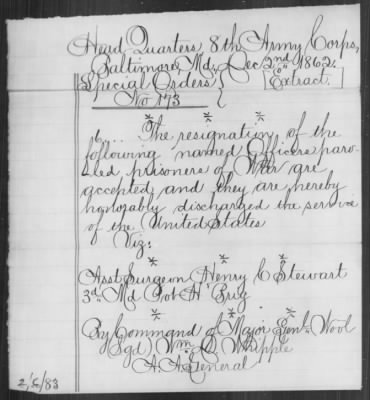 Head Quarters, 8th Army Corps,
Baltimore, Md, Dec 2nd 1862.
Special Orders } [Extract.]
No 173 {
* * *
6... The resignation of the
following named Officers paro-
led prisoners of War are
accepted and they are hereby
honorably discharged the service
of the United States
Viz:
* * *
Asst Surgeon Henry C Stewart
3d Md Pot H Brig
* * *
By Command of Major Genl Wool
(Sgd) Wm D Whipple
A. A. General
2/5/83